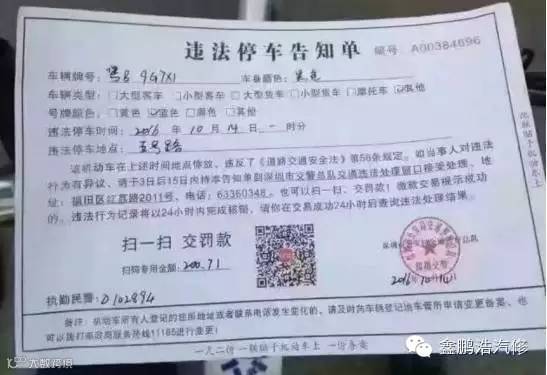 违法停车告知单 编号 A00384696
车辆牌号: 粤B 9G7X1 车身颜色: 黑色
车辆类型: □大型客车 □小型客车 □大型货车 □小型货车 □摩托车 ☑其他
号牌颜色: □黄色 ☑蓝色 □黑色 □其他
违法停车时间: 2016 年 10 月 14 日 一 时分
违法停车地点:
该机动车在上述时间地点停放,违反了《道路交通安全法》第56条规定。如当事人对违法
行为有异议,请于3日后15日内持本告知单到深圳市交警总队交通违法处理窗口接受处理,地
址:福田区红荔路2011号,电话:63360348,也可以扫一扫,交罚款!微信交易提示成功
的,违法行为记录将以24小时内完成核销,请你在交易成功24小时后查询违法处理结果。
扫一扫 交罚款
扫码专用金额: 200.71
2016 10
执勤民警: 0102894
备注:机动车所有人登记的住所地址或者联系电话发生变化的,请及时向车辆登记地车管所申请变更备案,也
可以拨打邮政局服务热线11185进行变更。
一九二份 一联贴于机动车上 一份备案
此联贴于机动车上
大数跨境
鑫鹏浩汽修